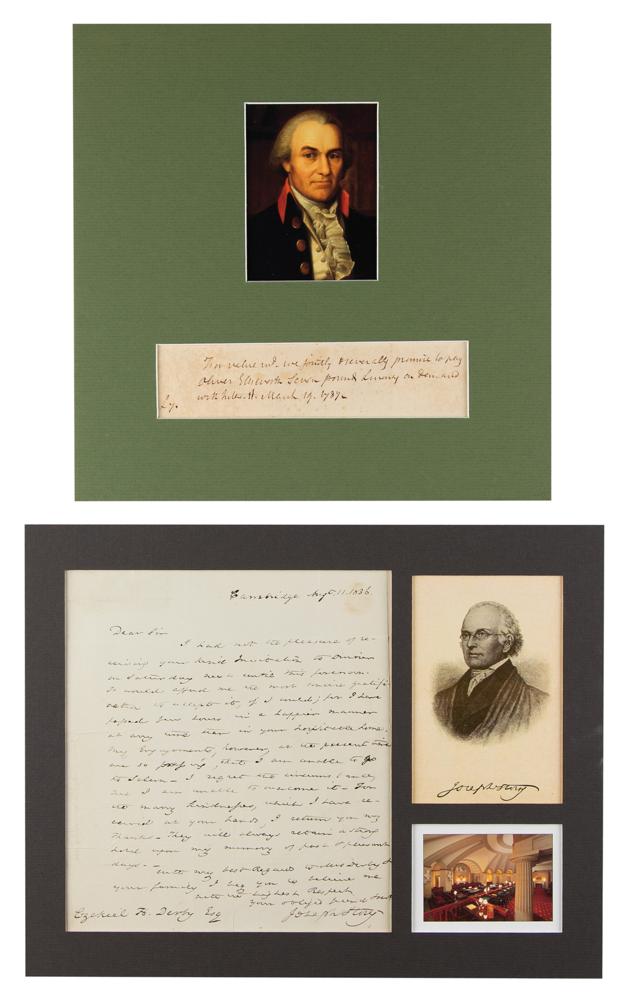 For value rec'd. we jointly & severally promise to pay
Oliver Ellsworth Seven pounds Lawmy on Demand
with March 19. 1787
Cambridge Augt. 11. 1836.
Dear Sir
I had not the pleasure of re-
ceiving your kind Invitation to Dinner
on Saturday next until this forenoon.
It would afford me the most sincere gratifi-
cation to accept it, if I could; for I have
passed few hours in a happier manner
at any time than in your hospitable home.
My Engagements, however, at the present time
are so pressing, that I am unable to go
to Salem - I regret the circumstance,
but I am unable to overcome it - For
the many kindnesses, which I have re-
ceived at your hands, I return you my
thanks - They will always retain a strong
hold upon my memory of past & pleasant
days -
with my best Regards to Mrs Derby &
your family I beg you to believe me
with the highest Respect
your obliged friend
Joseph Story
Ezekiel H. Derby Esq
Joseph Story